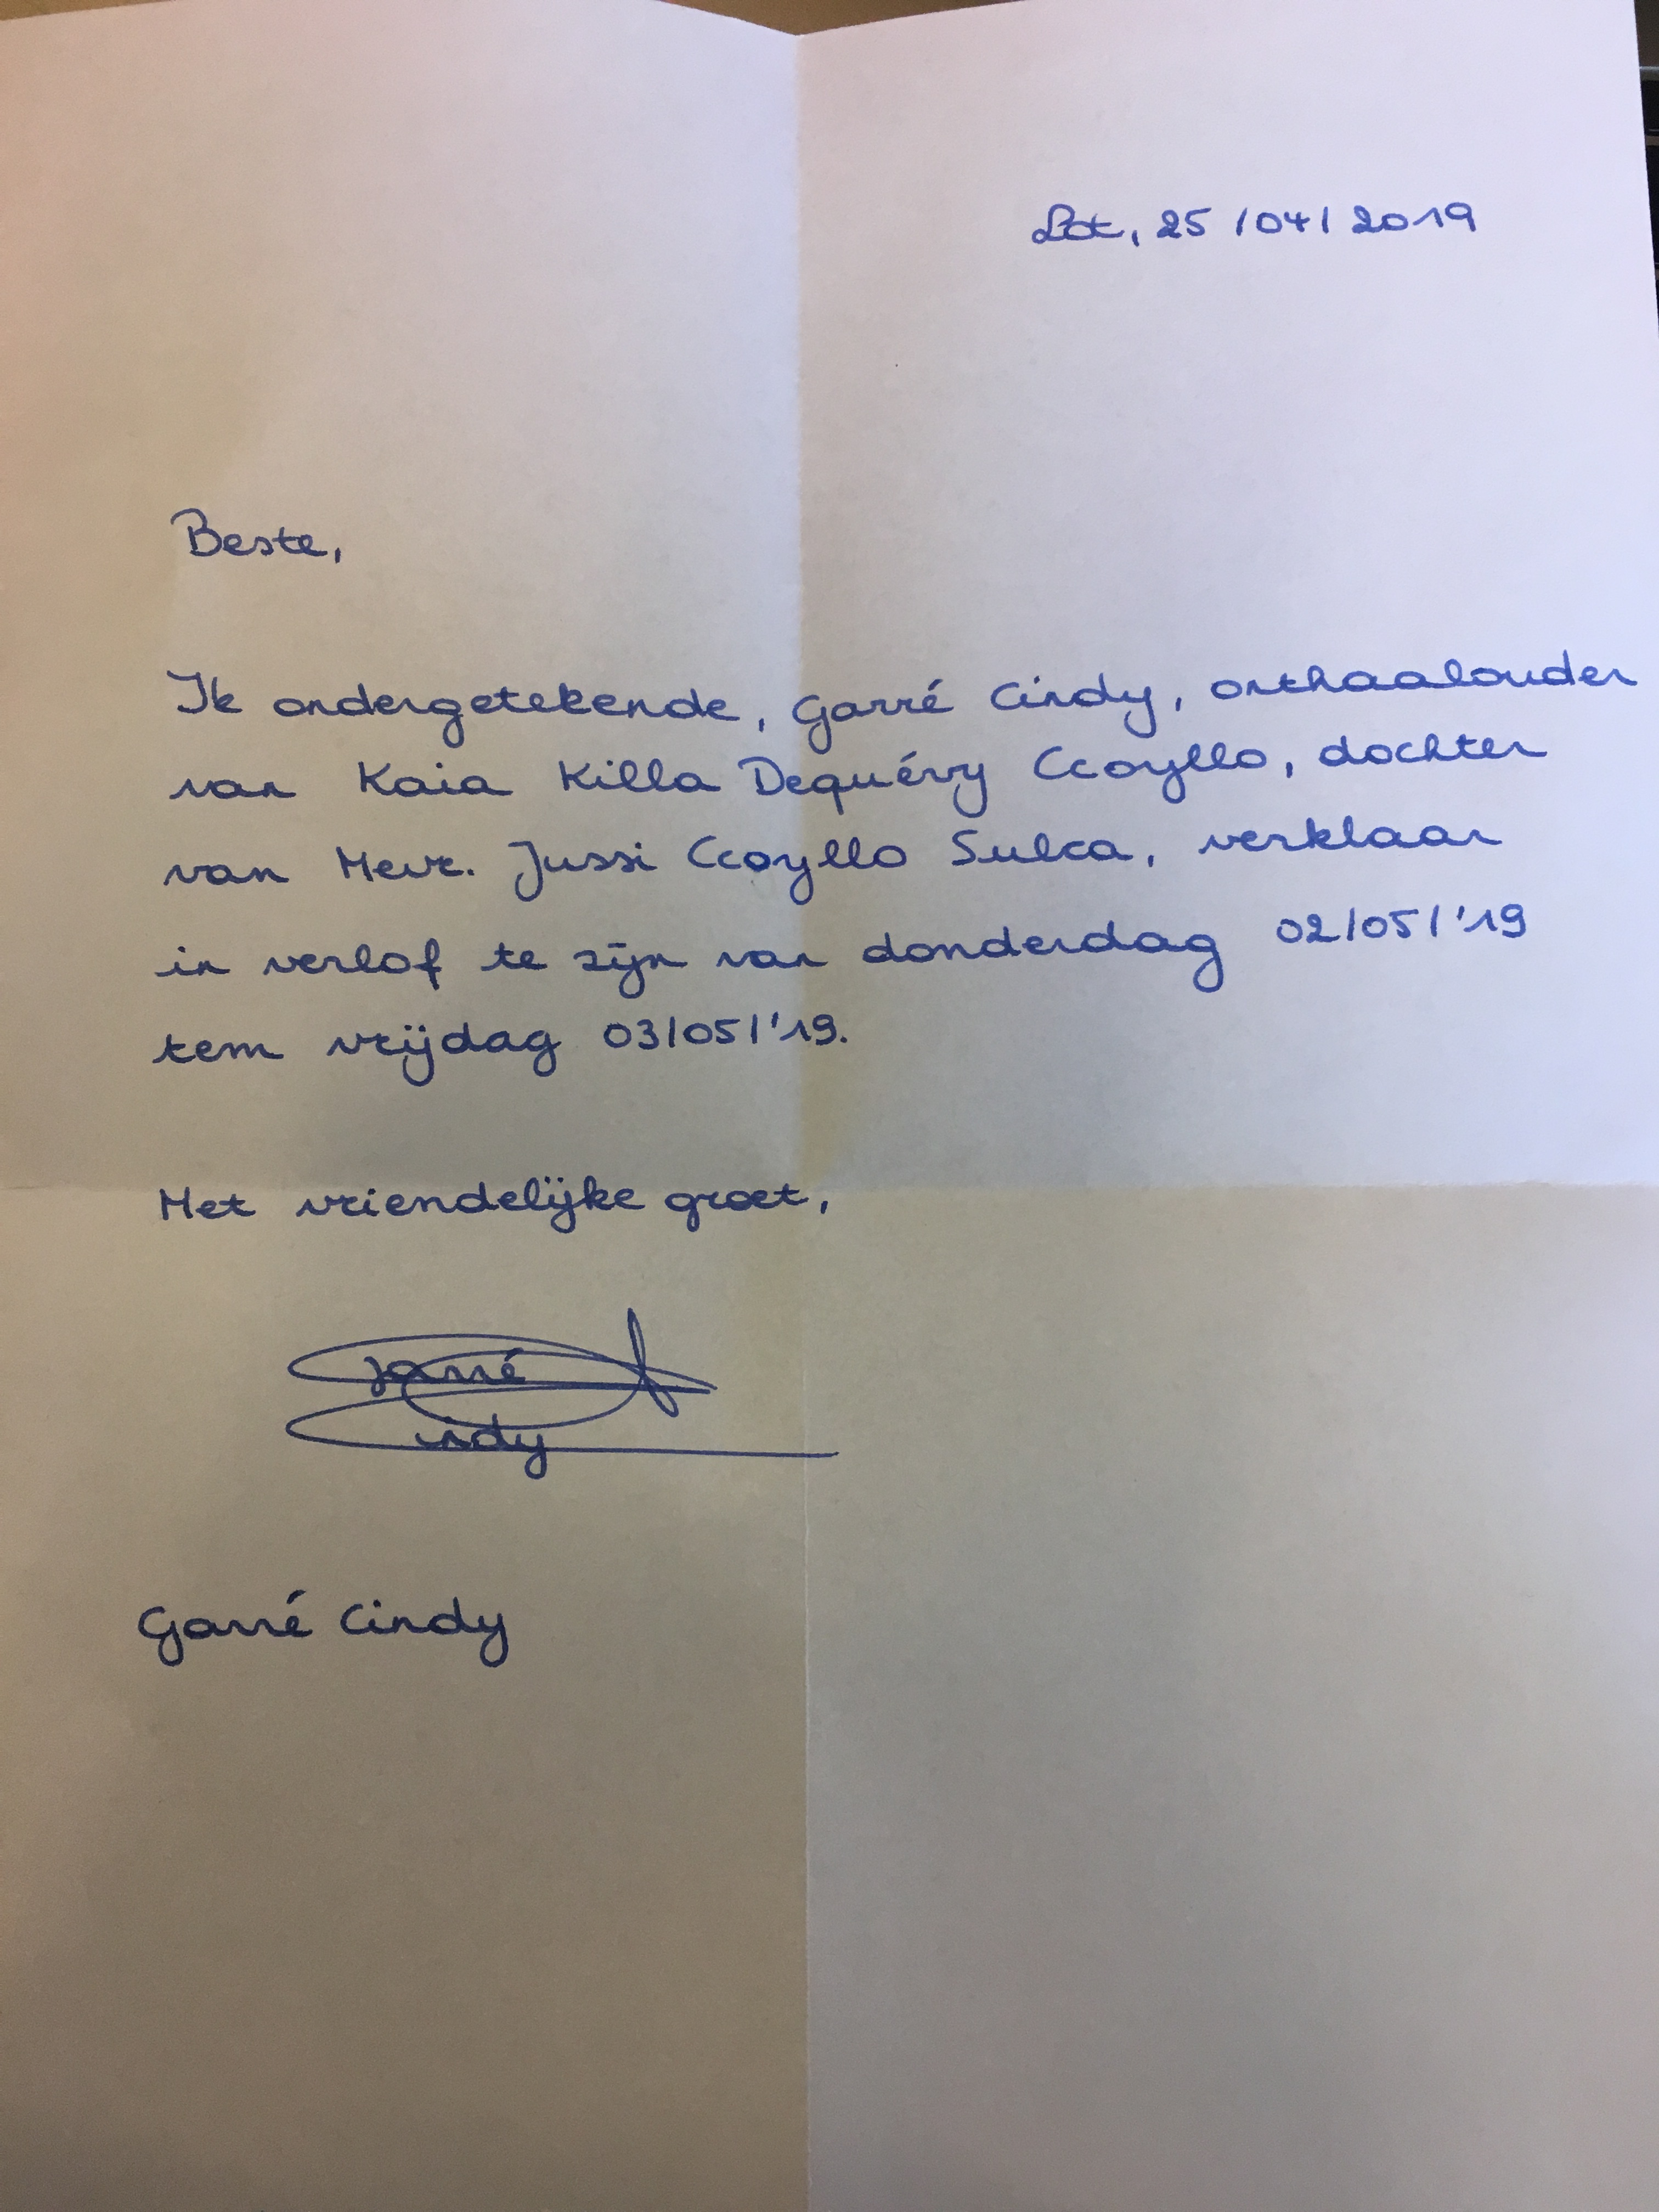 Lot, 25/04/2019
Beste,
Ik ondergetekende, Garré Cindy, onthaalouder
van Kaia Killa Dequévy Ccoyllo, dochter
van Mevr. Jussi Ccoyllo Sulca, verklaar
in verlof te zijn van donderdag 02/05/'19
tem vrijdag 03/05/'19.
Met vriendelijke groet,
Garré
Cindy
Garré Cindy